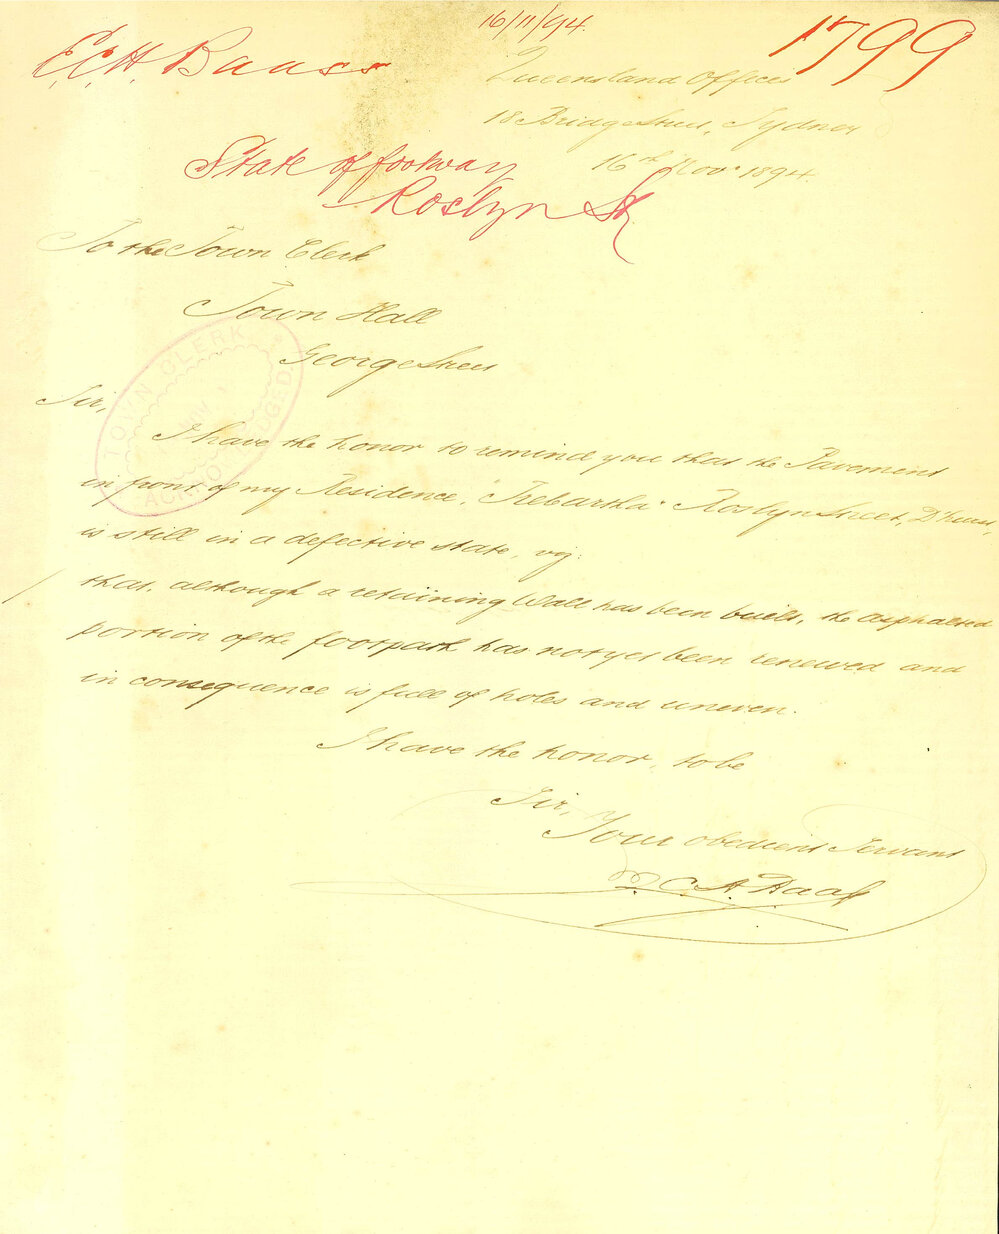 16/11/94.
1799
Queensland Offices
18 Bridge Street, Sydney
16th Novr 1894.
State of footway
Roslyn St
To the Town Clerk
Town Hall
George Street
TOWN CLERK
ACKNOWLEDGED.
Sir,
I have the honor to remind you that the Pavement
in front of my Residence, "Trebartha" Roslyn Street, D'hurst,
is still in a defective state, viz:
that, although a retaining Wall has been built, the asphalted
portion of the footpath has not yet been renewed and
in consequence is full of holes and uneven.
I have the honor, to be
Sir,
Your obedient Servant